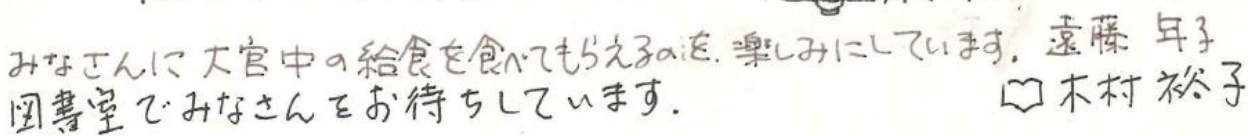 みなさんに大宮中の給食を食べてもらえるのを、楽しみにしています。遠藤 年子
図書室でみなさんをお待ちしています。 木村 裕子